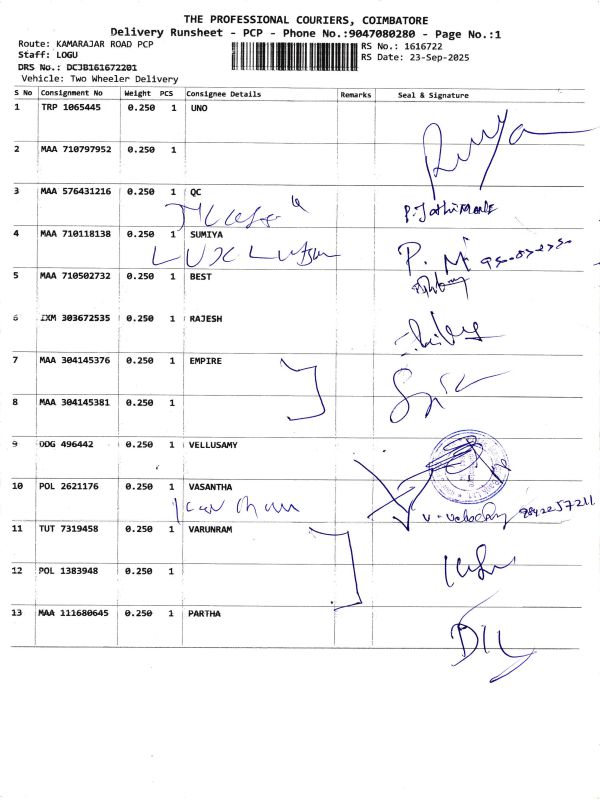 THE PROFESSIONAL COURIERS, COIMBATORE
Delivery Runsheet - PCP - Phone No.:9047080280 - Page No.:1
Route: KAMARAJAR ROAD PCP
Staff: LOGU
DRS No.: DCJB161672201
Vehicle: Two Wheeler Delivery
RS No.: 1616722
RS Date: 23-Sep-2025
S No Consignment No Weight PCS Consignee Details Remarks Seal & Signature
1 TRP 1065445 0.250 1 UNO
2 MAA 710797952 0.250 1
3 MAA 576431216 0.250 1 QC
4 MAA 710118138 0.250 1 SUMIYA
5 MAA 710502732 0.250 1 BEST
6 IXM 303672535 0.250 1 RAJESH
7 MAA 304145376 0.250 1 EMPIRE
8 MAA 304145381 0.250 1
9 ODG 496442 0.250 1 VELLUSAMY
10 POL 2621176 0.250 1 VASANTHA
9842257211
11 TUT 7319458 0.250 1 VARUNRAM
12 POL 1383948 0.250 1
13 MAA 111680645 0.250 1 PARTHA